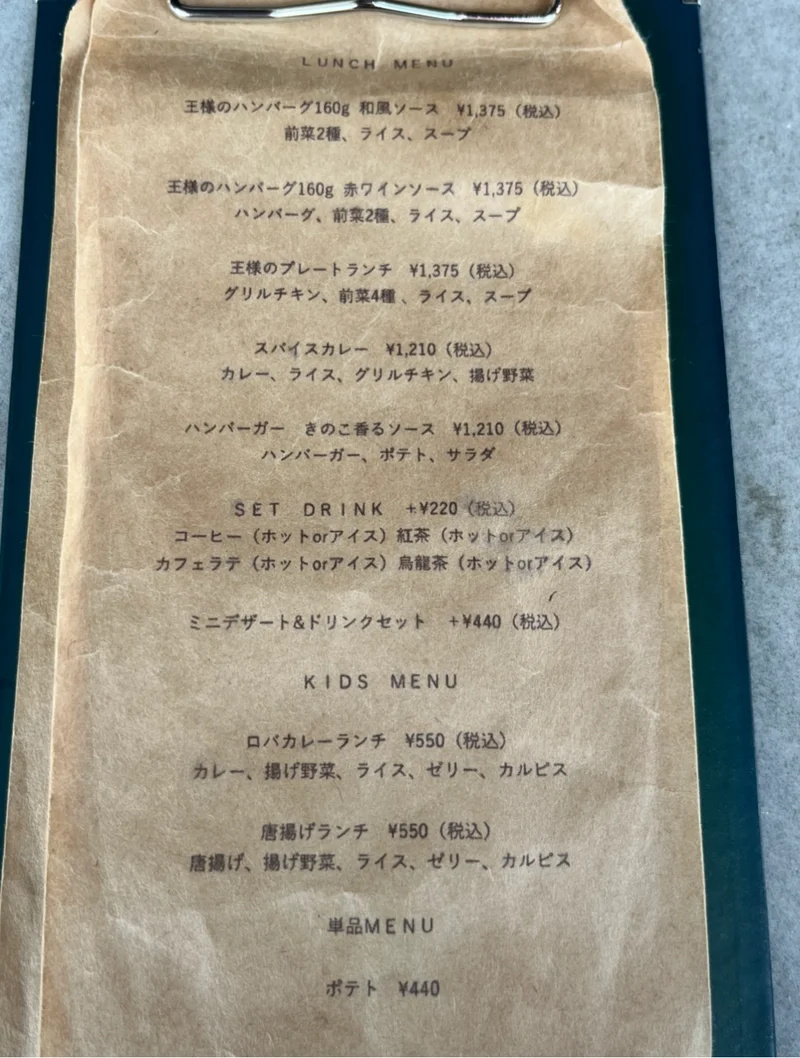 LUNCH MENU
王様のハンバーグ160g 和風ソース ¥1,375（税込）
前菜2種、ライス、スープ
王様のハンバーグ160g 赤ワインソース ¥1,375（税込）
ハンバーグ、前菜2種、ライス、スープ
王様のプレートランチ ¥1,375（税込）
グリルチキン、前菜4種 、ライス、スープ
スパイスカレー ¥1,210（税込）
カレー、ライス、グリルチキン、揚げ野菜
ハンバーガー きのこ香るソース ¥1,210（税込）
ハンバーガー、ポテト、サラダ
SET DRINK +¥220（税込）
コーヒー（ホットorアイス）紅茶（ホットorアイス）
カフェラテ（ホットorアイス）烏龍茶（ホットorアイス）
ミニデザート&ドリンクセット +¥440（税込）
KIDS MENU
ロバカレーランチ ¥550（税込）
カレー、揚げ野菜、ライス、ゼリー、カルピス
唐揚げランチ ¥550（税込）
唐揚げ、揚げ野菜、ライス、ゼリー、カルピス
単品MENU
ポテト ¥440